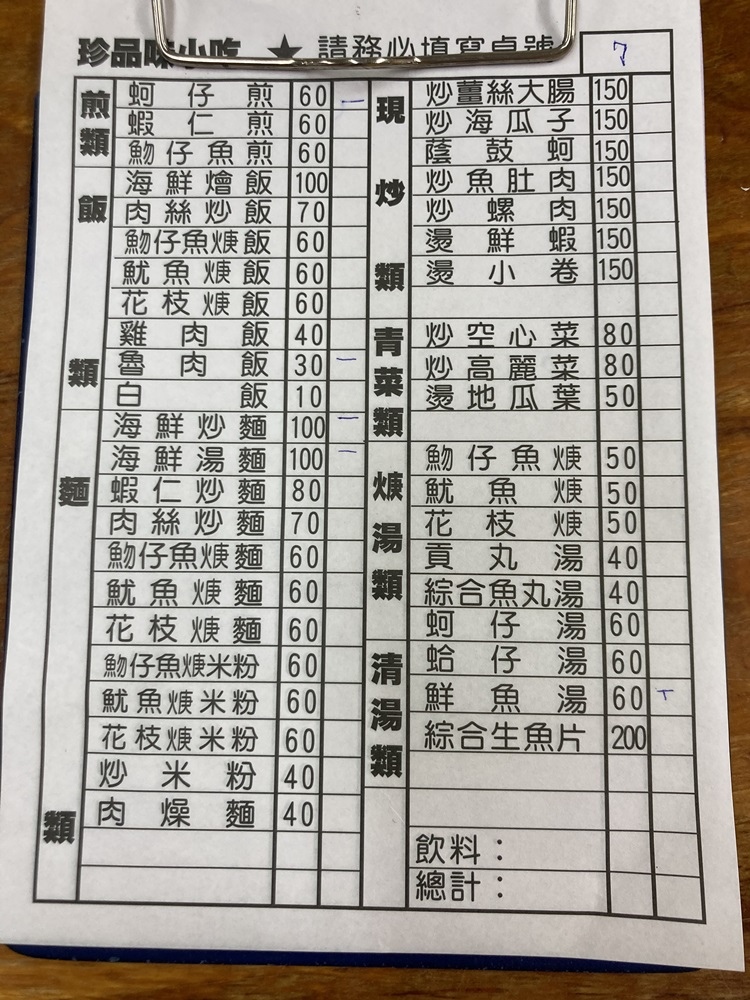 珍品味小吃 ★ 請務必填寫桌號 7
煎類
蚵仔煎 60 一
蝦仁煎 60
魩仔魚煎 60
飯類
海鮮燴飯 100
肉絲炒飯 70
魩仔魚焿飯 60
魷魚焿飯 60
花枝焿飯 60
雞肉飯 40
魯肉飯 30 一
白飯 10
麵類
海鮮炒麵 100 一
海鮮湯麵 100 一
蝦仁炒麵 80
肉絲炒麵 70
魩仔魚焿麵 60
魷魚焿麵 60
花枝焿麵 60
魩仔魚焿米粉 60
魷魚焿米粉 60
花枝焿米粉 60
炒米粉 40
肉燥麵 40
現炒類
炒薑絲大腸 150
炒海瓜子 150
蔭鼓蚵 150
炒魚肚肉 150
炒螺肉 150
燙鮮蝦 150
燙小卷 150
青菜類
炒空心菜 80
炒高麗菜 80
燙地瓜葉 50
焿湯類
魩仔魚焿 50
魷魚焿 50
花枝焿 50
貢丸湯 40
綜合魚丸湯 40
清湯類
蚵仔湯 60
蛤仔湯 60
鮮魚湯 60 T
綜合生魚片 200
飲料：
總計：